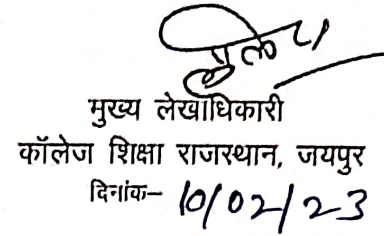 मुख्य लेखाधिकारी
कॉलेज शिक्षा राजस्थान, जयपुर
दिनांक– 10/02/23